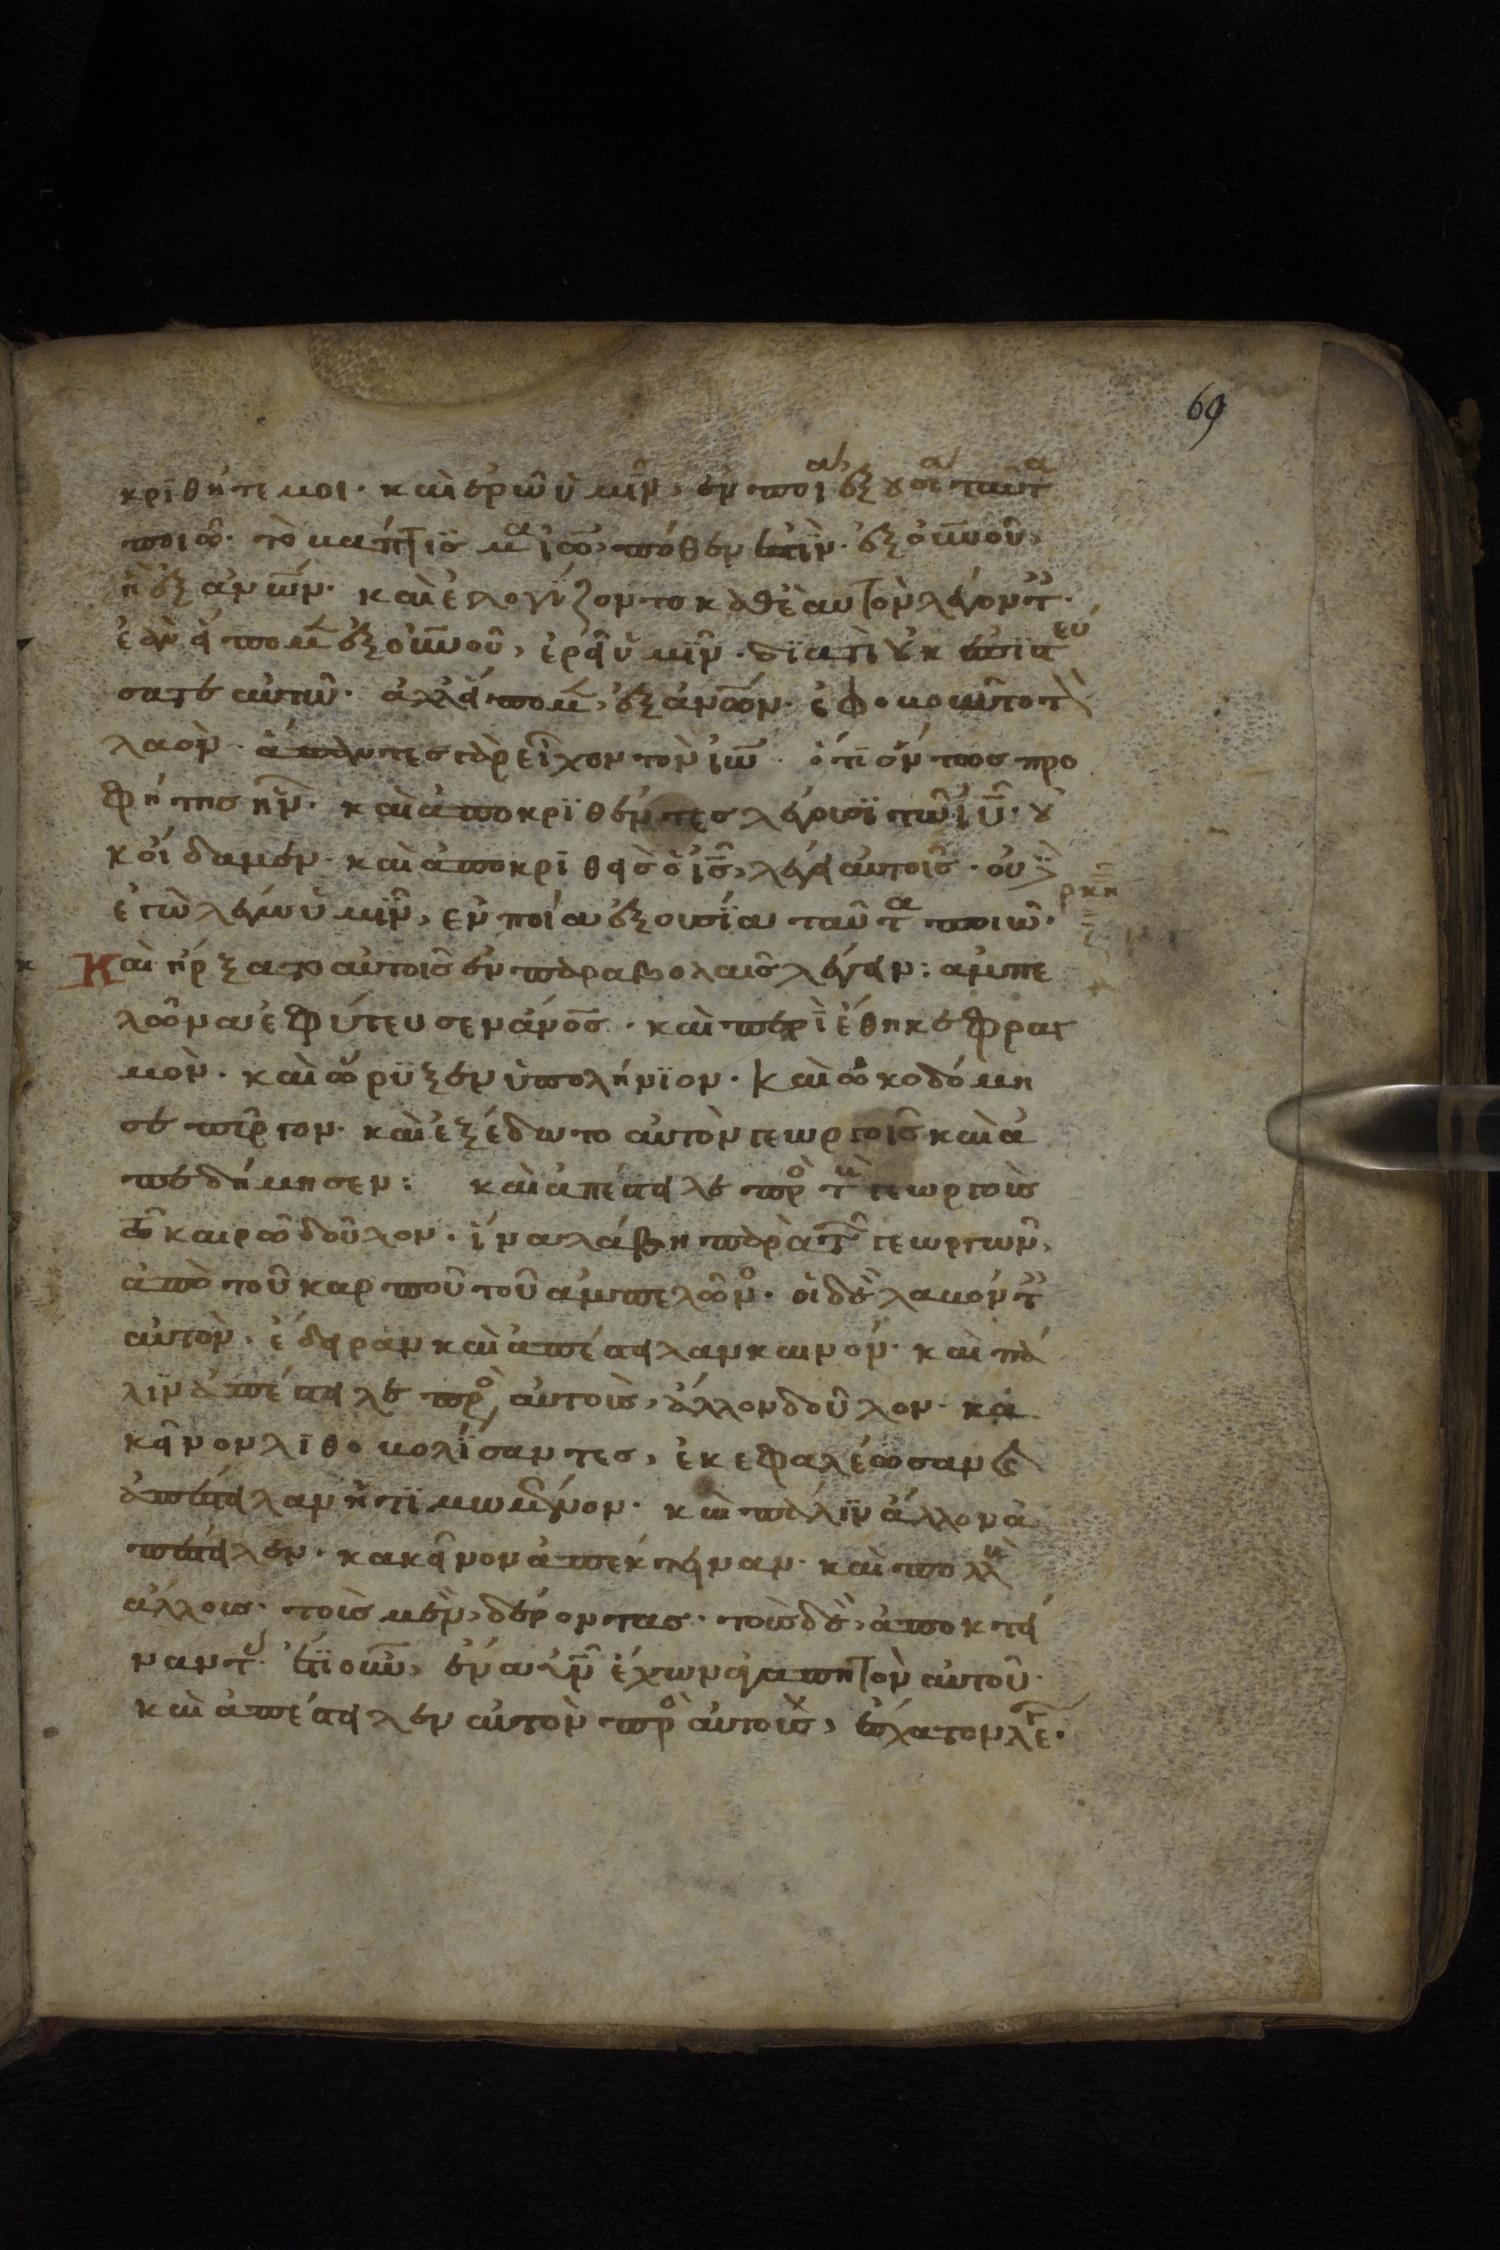 69
κριθητέ μοι· καὶ ἐρῶ ὑμῖν, ἐν ποί ἐξουσί ταῦτα
ποιῶ· τὸ βάπτισμα ἰω, πόθεν ἐστὶν· ἐξ οὐνοῦ,
ἢ ἐξ ανων· καὶ ἐλογίζοντο καθ' ἑαυτὸν λέγοντ·
ἐὰν εἴπομ ἐξ οὐνοῦ, ἐρεῖ ὑμῖν· διατί οὐκ ἐπιστεύ
σατε αὐτῶ· ἀλλ' εἴπομ, ἐξ ἀνων· ἐφοβοῦντο τὸν
λαὸν· ἅπαντες γὰρ εἶχον τὸν ἰω· ὅτι ὄντως προ
φήτης ἦν· καὶ ἀποκριθέντες λέγουσι τῶ ἰυ· οὐ
κ οἴδαμεν· καὶ ἀποκριθεὶς ὁ ις, λέγει αὐτοῖς· οὐδὲ
ρκη
ἐγὼ λέγω ὑμῖν, ἐν ποία ἐξουσία ταῦτα ποιῶ·
Καὶ ἤρξατο αὐτοῖς ἐν παραβολαῖς λέγειν: ἀμπε
λῶνα ἐφύτευσεν ἄνος· καὶ περιέθηκε φραγ
μὸν· καὶ ὤρυξεν ὑπολήνιον· καὶ ὠκοδόμη
σε πύργον· καὶ ἐξέδωτο αὐτὸν γεωργοῖς καὶ ἀ
πεδήμησεν: καὶ ἀπέστειλε πρὸ τοὺ γεωργοὺς
τῶ καιρῶ δοῦλον· ἵνα λάβη παρὰ τ γεωργῶν,
ἀπὸ τοῦ καρποῦ τοῦ ἀμπελῶνο· οἱ δὲ λαβόντ
αὐτὸν, ἔδειραν καὶ ἀπέστειλαν καινόν· καὶ πά
λιν ἀπέστειλε πρὸ αὐτοὺς, ἄλλον δοῦλον· κα
κεῖνον λιθοβολίσαντες, ἐκεφαλέωσαν καὶ
ἀπέστειλαν ἠτιμωμένον· καὶ πάλιν ἄλλον ἀ
πέστειλεν· κακεῖνον ἀπέκτειναν· καὶ πολλοὺ
ἄλλους· τοὺς μὲν, δέροντας· τοὺς δὲ, ἀποκτεί
ναντ· ἔτι οὖν, ἕνα υἱν ἔχων ἀγαπητὸν αὐτοῦ·
καὶ ἀπέστειλεν αὐτὸν πρὸ αὐτοὺς, ἔσχατον λέγ·